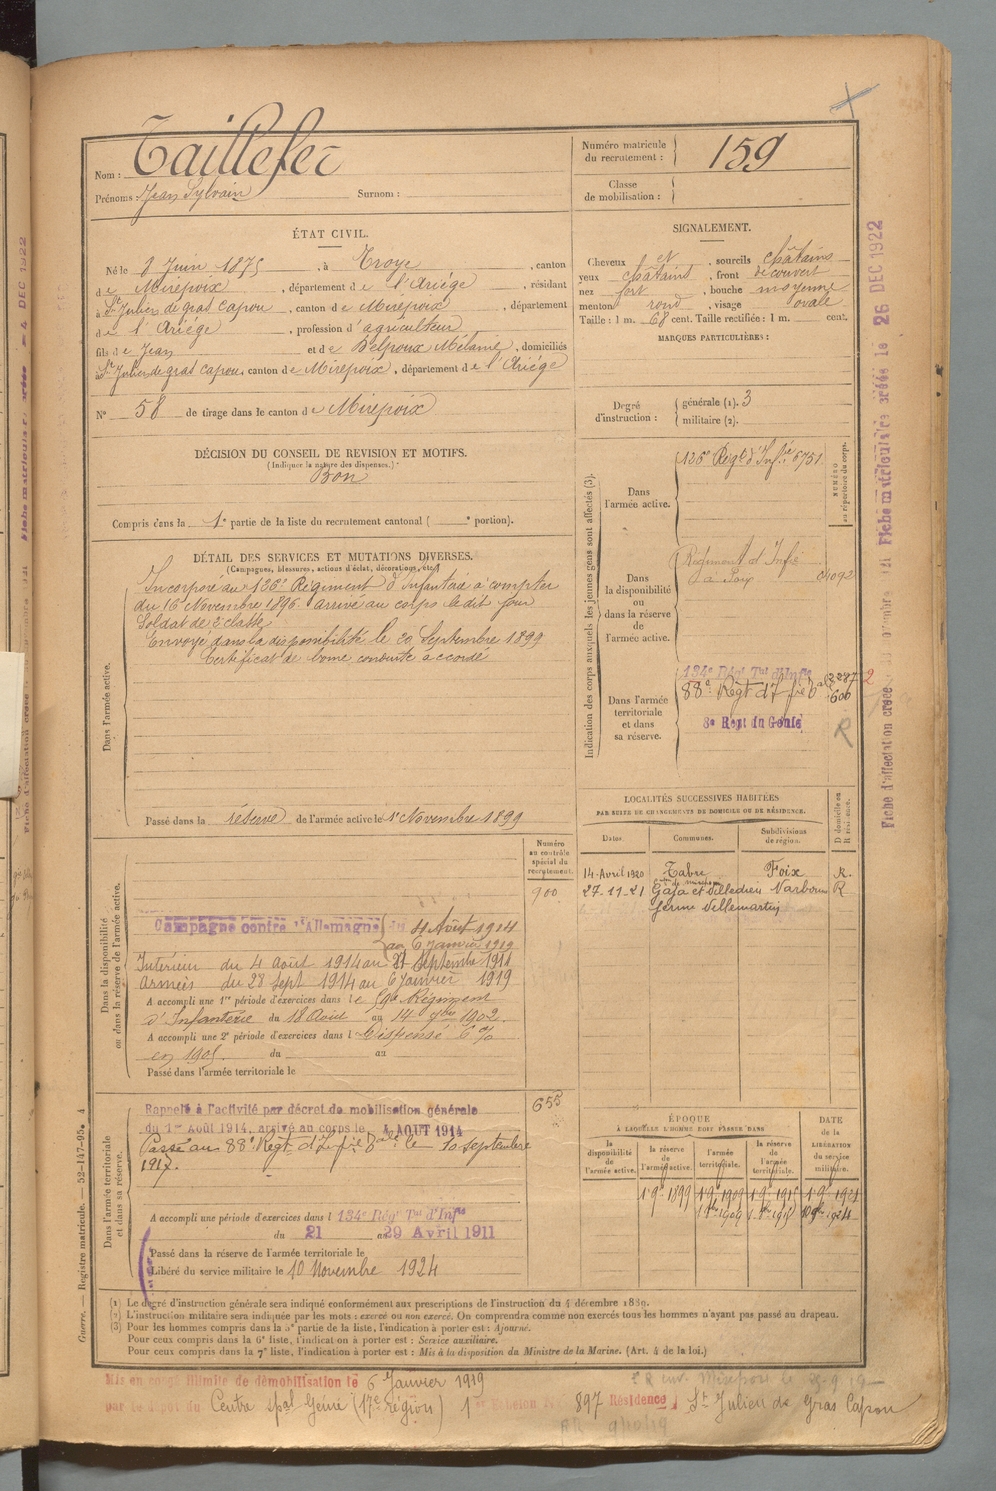 Nom : Taillefer
Prénoms : Jean Sylvain Surnom :
Numéro matricule du recrutement : 159
Classe de mobilisation :
ÉTAT CIVIL.
Né le 8 Juin 1875, à Troye, canton
de Mirepoix, département de l'Ariége, résidant
à St Julien de gras Capou, canton de Mirepoix, département
de l'Ariége, profession d'agriculteur
fils de Jean et de Belpoux Mélanie, domiciliés
à St Julien de gras Capou, canton de Mirepoix, département de l'Ariége
No 58 de tirage dans le canton de Mirepoix
SIGNALEMENT.
Cheveux et, sourcils châtains
yeux châtains, front découvert
nez fort, bouche moyenne
menton rond, visage ovale
Taille : 1 m. 68 cent. Taille rectifiée : 1 m. cent.
MARQUES PARTICULIÈRES :
Degré d'instruction : générale (1). 3
militaire (2).
DÉCISION DU CONSEIL DE REVISION ET MOTIFS.
(Indiquer la nature des dispenses.)
Bon
Compris dans la 1e partie de la liste du recrutement cantonal ( e portion).
DÉTAIL DES SERVICES ET MUTATIONS DIVERSES.
(Campagnes, blessures, actions d'éclat, décorations, etc.)
Dans l'armée active.
Incorporé au 126e Régiment d'Infanterie à compter
du 16 Novembre 1896. arrivé au corps le dit jour
Soldat de 2e classe
Envoyé dans la disponibilité le 20 Septembre 1899
Certificat de bonne conduite accordé
Passé dans la réserve de l'armée active le 1er Novembre 1899
Indication des corps auxquels les jeunes gens sont affectés (3).
NUMÉRO au répertoire du corps.
Dans l'armée active.
126e Régt d'Infie 6751
Dans la disponibilité ou dans la réserve de l'armée active.
Régiment d'Infie
à Foix 04092
Dans l'armée territoriale et dans sa réserve.
134e Régt Tal d'Infie
88e Regt d'Infie 600
8e Regt du Génie
R
LOCALITÉS SUCCESSIVES HABITÉES
PAR SUITE DE CHANGEMENTS DE DOMICILE OU DE RÉSIDENCE.
Dates. Communes. Subdivisions de région. D domicile ou R résidence.
14-Avril 1920 Tabre Foix R.
27-11-21 Gaja et Villedieu Narbonne R
ferme Villemartin
Numéro au contrôle spécial du recrutement.
900
Dans la disponibilité ou dans la réserve de l'armée active.
Campagne contre l'Allemagne du 4 Août 1914
au 6 janvier 1919
Intérieur du 4 août 1914 au 27 Septembre 1914
Armées du 28 Sept 1914 au 6 janvier 1919
A accompli une 1re période d'exercices dans le 59e Régiment
d'Infanterie du 18 Août au 14 7bre 1902.
A accompli une 2e période d'exercices dans l Dispensé 6%
en 1905. du au
Passé dans l'armée territoriale le
Dans l'armée territoriale et dans sa réserve.
655
Rappelé à l'activité par décret de mobilisation générale
du 1er Août 1914, arrivé au corps le 4 AOUT 1914
Passé au 88e Regt d'Infie le 10 septembre
1917.
A accompli une période d'exercices dans l 134e Régt Tal d'Infie
du 21 au 29 Avril 1911
Passé dans la réserve de l'armée territoriale le
Libéré du service militaire le 10 Novembre 1924
ÉPOQUE
A LAQUELLE L'HOMME DOIT PASSER DANS
la disponibilité de l'armée active. la réserve de l'armée active. l'armée territoriale. la réserve de l'armée territoriale. DATE de la LIBÉRATION du service militaire.
1 9bre 1899 1 9bre 1909 1 9bre 1915 1 9bre 1921
(1) Le degré d'instruction générale sera indiqué conformément aux prescriptions de l'instruction du 4 décembre 1889.
(2) L'instruction militaire sera indiquée par les mots : exercé ou non exercé. On comprendra comme non exercés tous les hommes n'ayant pas passé au drapeau.
(3) Pour les hommes compris dans la 5e partie de la liste, l'indication à porter est : Ajourné.
Pour ceux compris dans la 6e liste, l'indication à porter est : Service auxiliaire.
Pour ceux compris dans la 7e liste, l'indication à porter est : Mis à la disposition du Ministre de la Marine. (Art. 4 de la loi.)
Guerre. — Registre matricule. — 52-147-95. 4
Mis en congé illimité de démobilisation le 6 Janvier 1919
par le dépôt du Centre spal Génie (17e région) 1er Echelon No 897 Résidence St Julien de Gras Capou
Fiche matricule créée le 26 DEC 1922
Fiche d'affectation créée